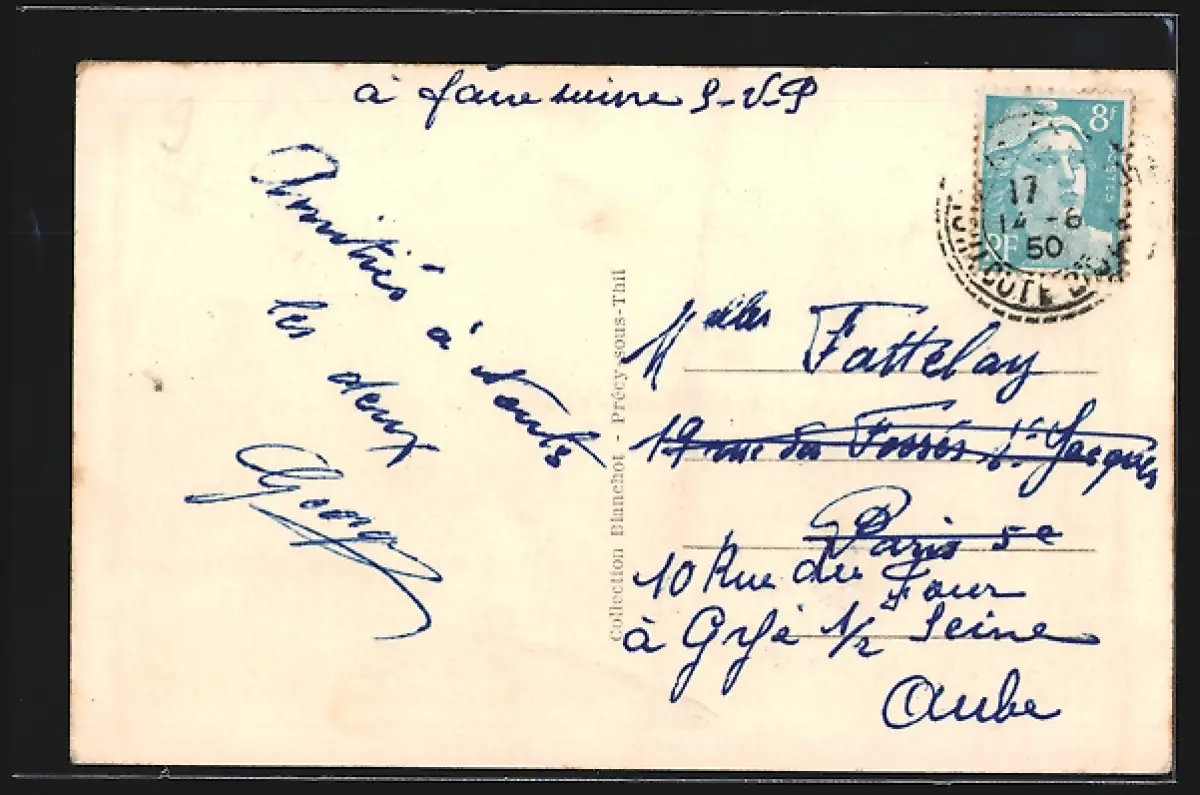 à faire suivre S-V-P
8f
POSTES
RF
17
14-6
50
COTE D'OR
Amitiés à toutes
les deux
Georg
Collection Blanchot - Précy-sous-Thil
Melles Fattelay
19 rue des Fossés St Jacques
Paris 5e
10 Rue du Four
à Gyé s/ Seine
Aube